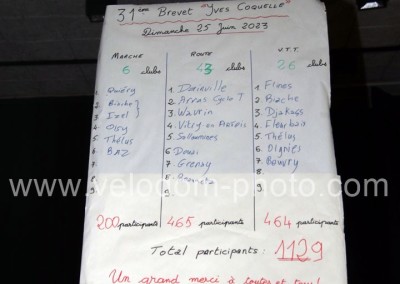 31ème Brevet "Yves Coquelle"
Dimanche 25 Juin 2023
MARCHE
6 clubs
1 Quiéry
2 Biache
3 Izel
4 Oisy
5 Thélus
6 BAZ
7
8
ROUTE
43 clubs
1. Dainville
2. Arras Cyclo T
3. Wavrin
4. Vitry en Artois
5.
6 Douai
7. Grenay
8.
9.
V.T.T.
26 clubs
1. Flines
2. Biache
3. Djakass
4. Fleurbaix
5. Thélus
6. Oignies
7. Bouvry
8.
9.
www.velocom-photo.com
200 participants
465 participants
464 participants
Total participants : 1129
Un grand merci à toutes et tous!